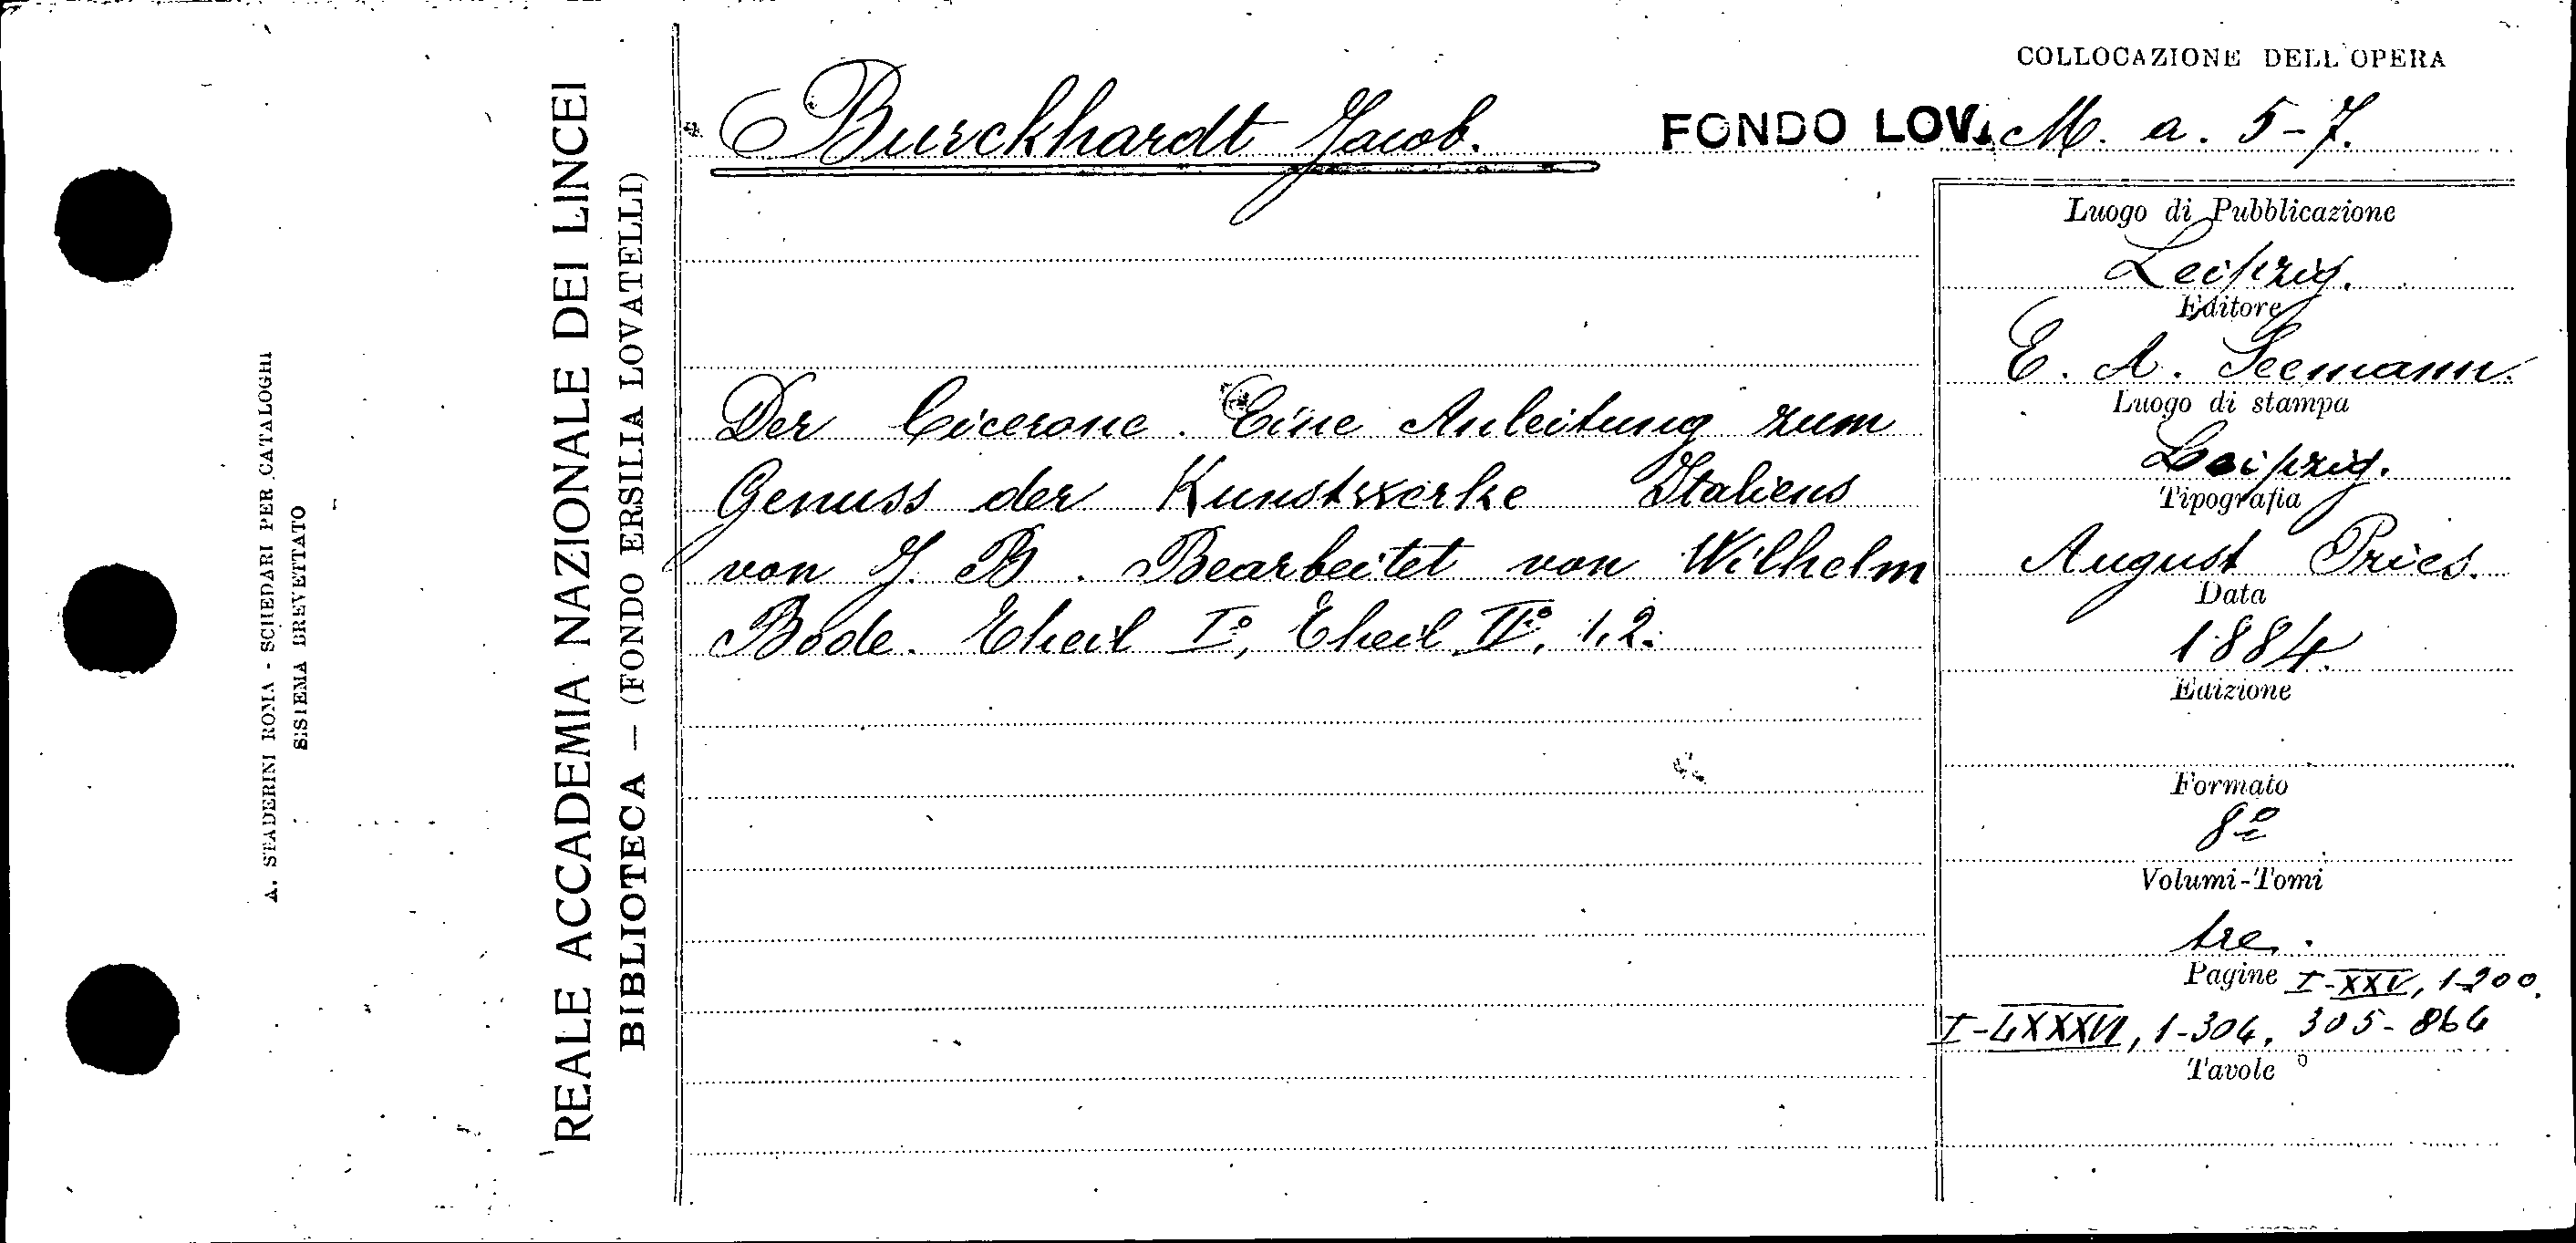 A. STADERINI ROMA - SCHEDARI PER CATALOGHI
SISTEMA BREVETTATO
REALE ACCADEMIA NAZIONALE DEI LINCEI
BIBLIOTECA — (FONDO ERSILIA LOVATELLI)
COLLOCAZIONE DELL'OPERA
Burckhardt Jacob. FONDO LOV. M. a. 5-7.
Der Cicerone. Eine Anleitung zum
Genuss der Kunstwerke Italiens
von J. B. Bearbeitet von Wilhelm
Bode. Theil I°, Theil II°, 1,2.
Luogo di Pubblicazione
Leipzig.
Editore
E. A. Seemann.
Luogo di stampa
Leipzig.
Tipografia
August Pries.
Data
1884.
Edizione
Formato
8°
Volumi-Tomi
tre.
Pagine I-XXV, 1-200.
I-LXXXVI, 1-304, 305-864
Tavole